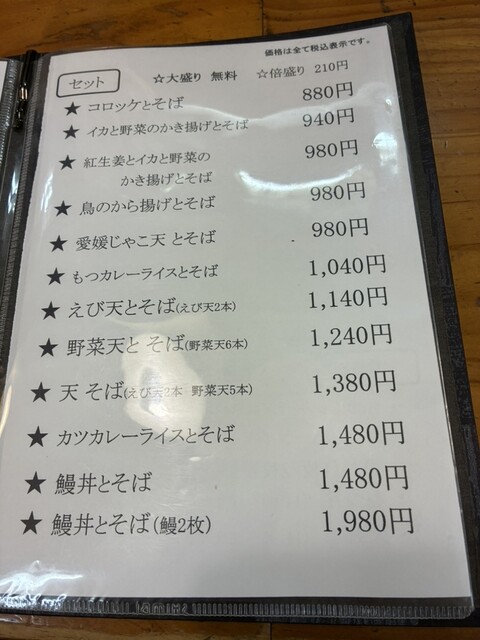 価格は全て税込表示です。
セット ☆大盛り 無料 ☆倍盛り 210円
★ コロッケとそば 880円
★ イカと野菜のかき揚げとそば 940円
★ 紅生姜とイカと野菜の 980円
かき揚げとそば
★ 鳥のから揚げとそば 980円
★ 愛媛じゃこ天 とそば 980円
★ もつカレーライスとそば 1,040円
★ えび天とそば(えび天2本) 1,140円
★ 野菜天と そば(野菜天6本) 1,240円
★ 天 そば(えび天2本 野菜天5本) 1,380円
★ カツカレーライスとそば 1,480円
★ 鰻丼とそば 1,480円
★ 鰻丼とそば(鰻2枚) 1,980円